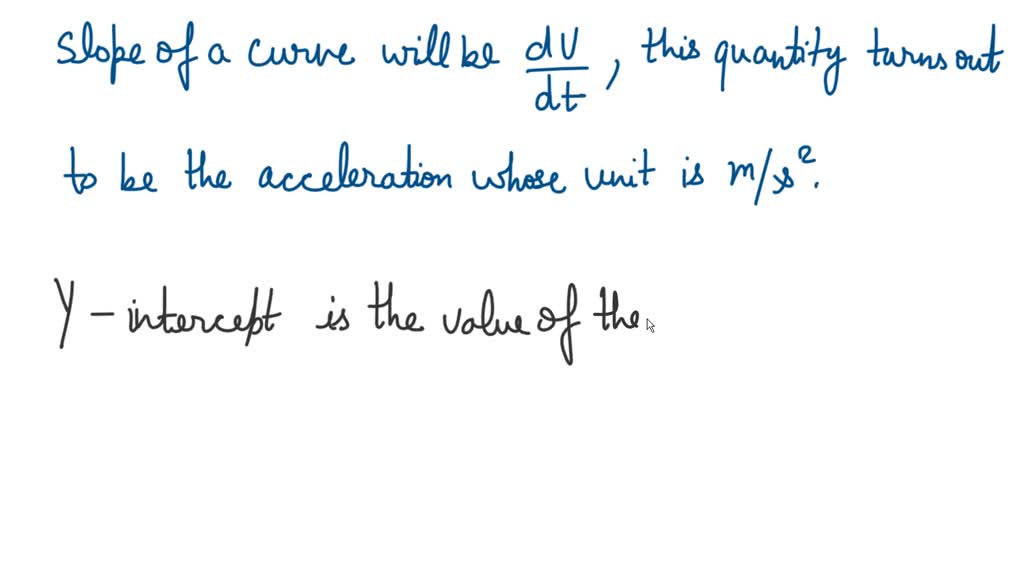 Slope of a curve will be dV/dt, this quantity turns out
to be the acceleration whose unit is m/s².
Y-intercept is the value of the